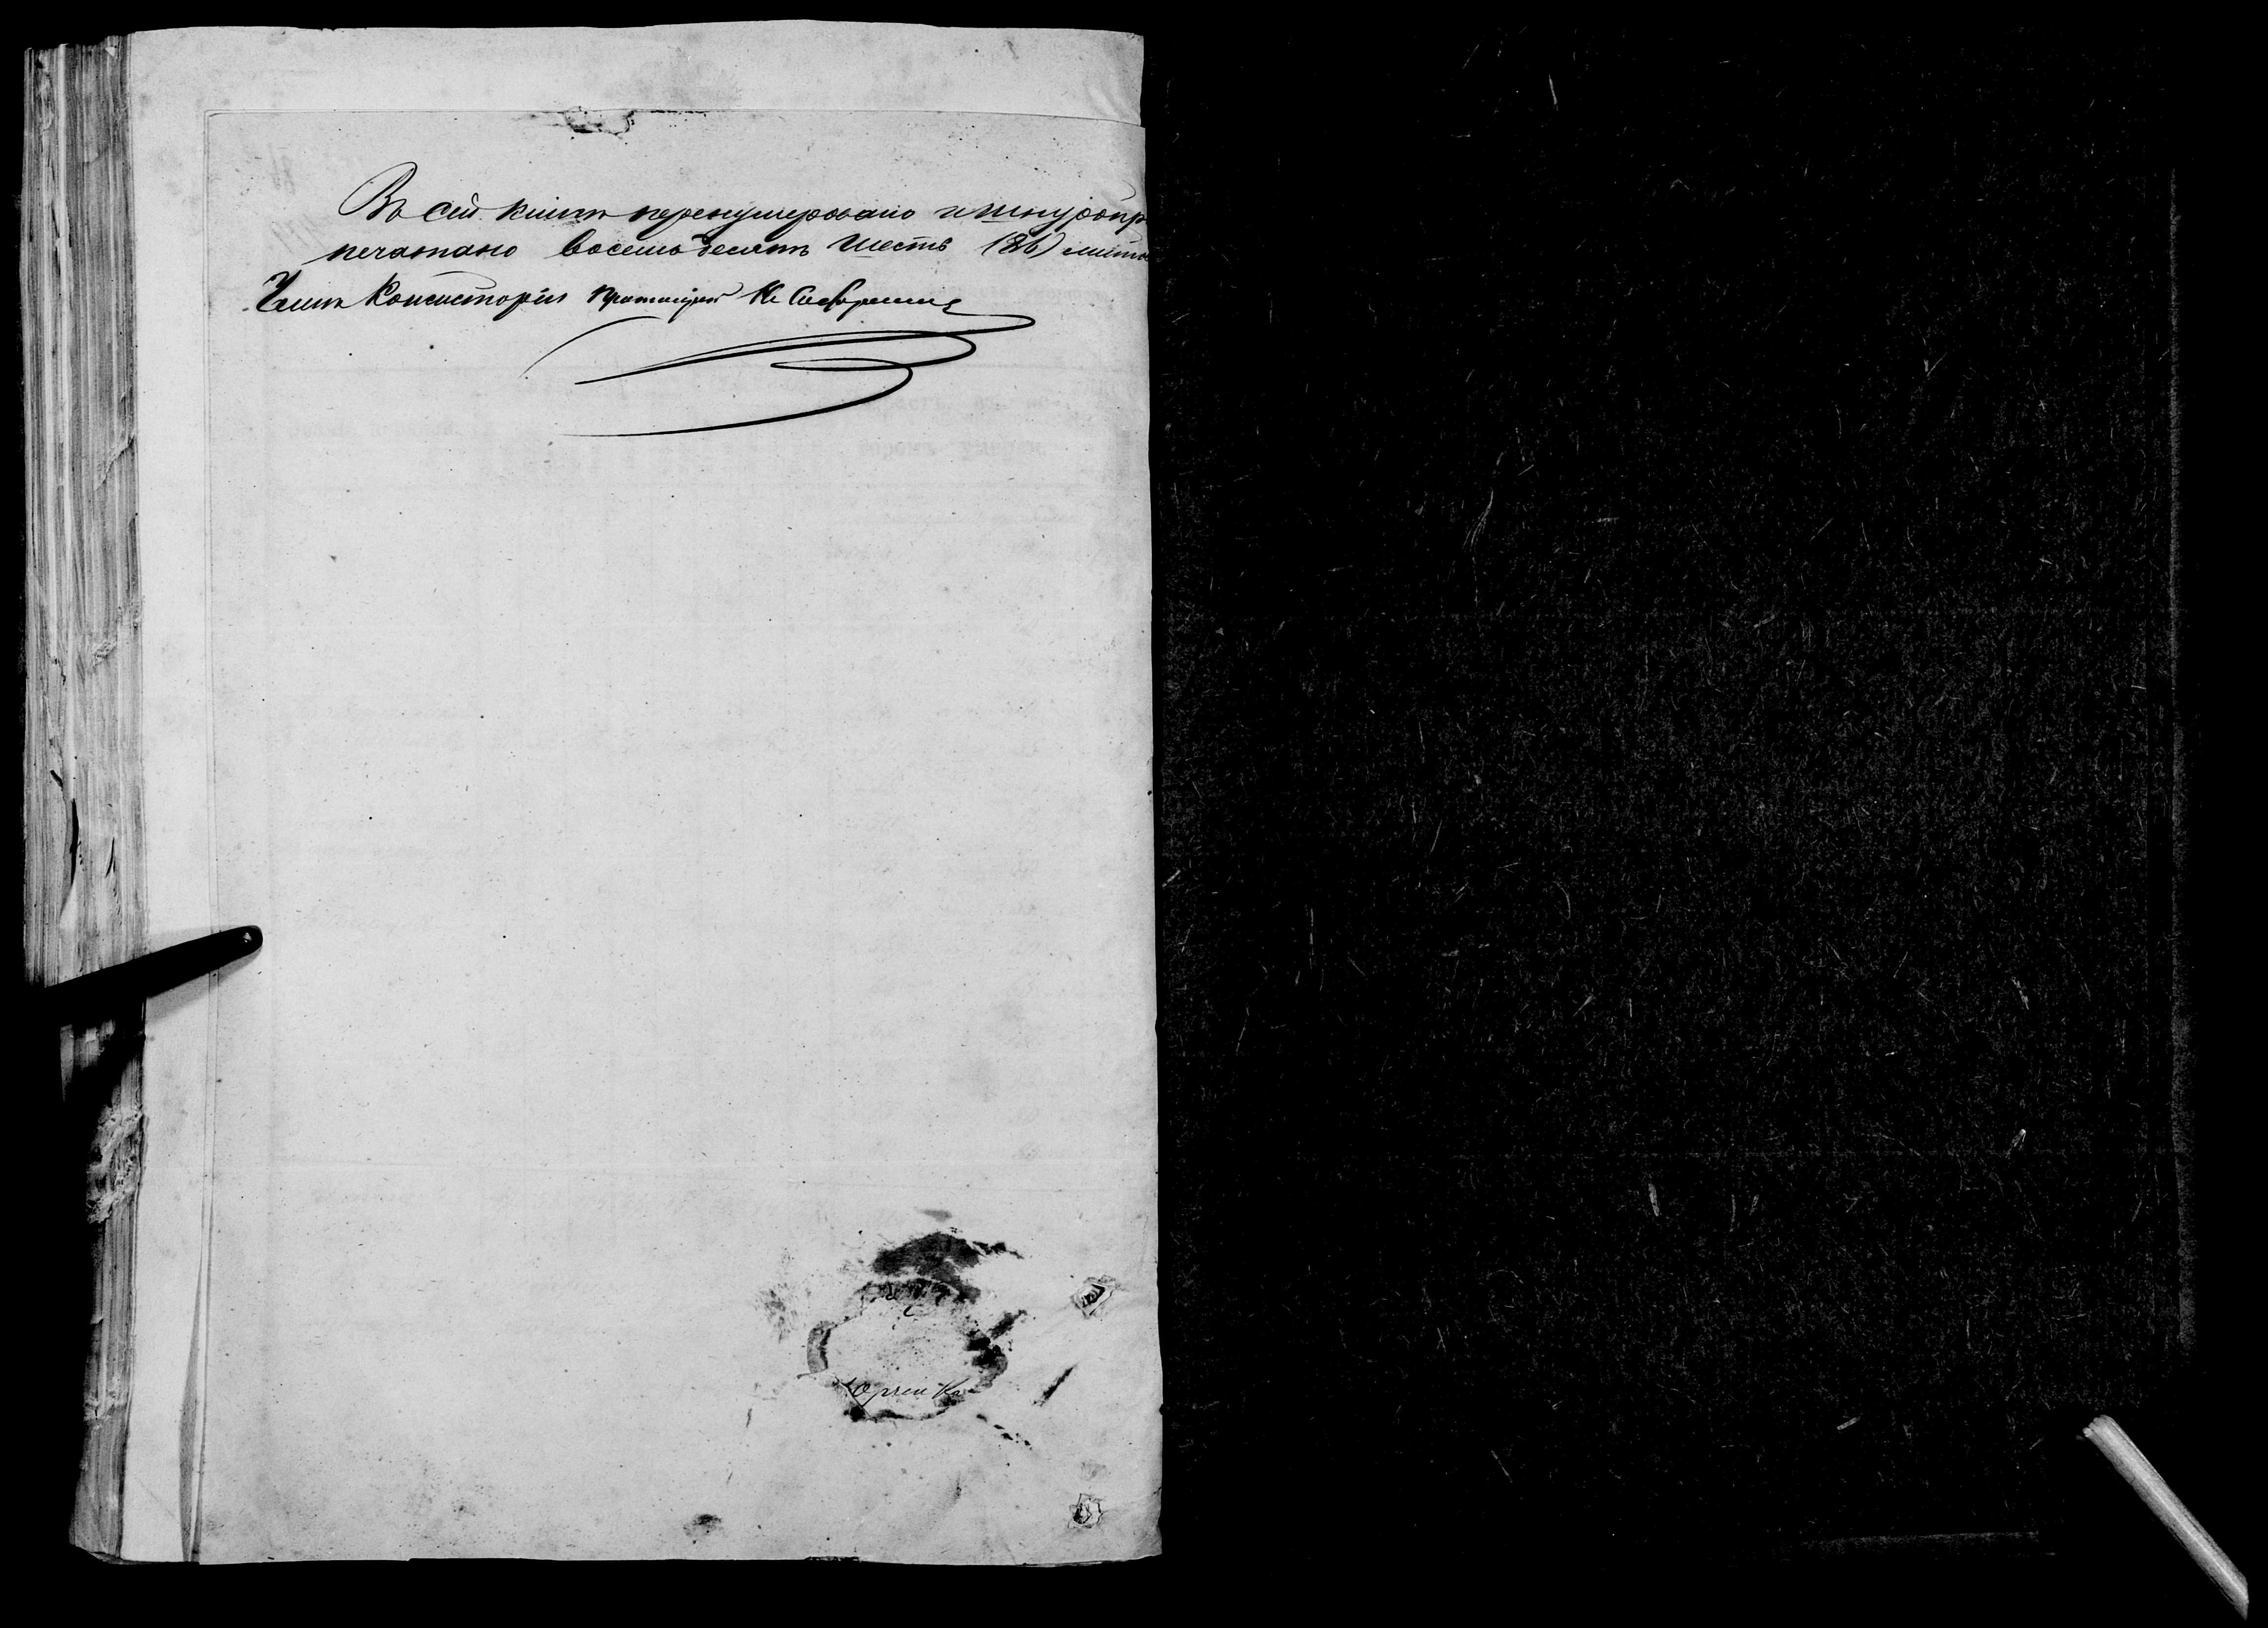 Въ сей книгѣ перенумеровано и шнуропри
печатано восемьдесятъ шесть (86) листовъ
Членъ Консисторіи Протоіерей